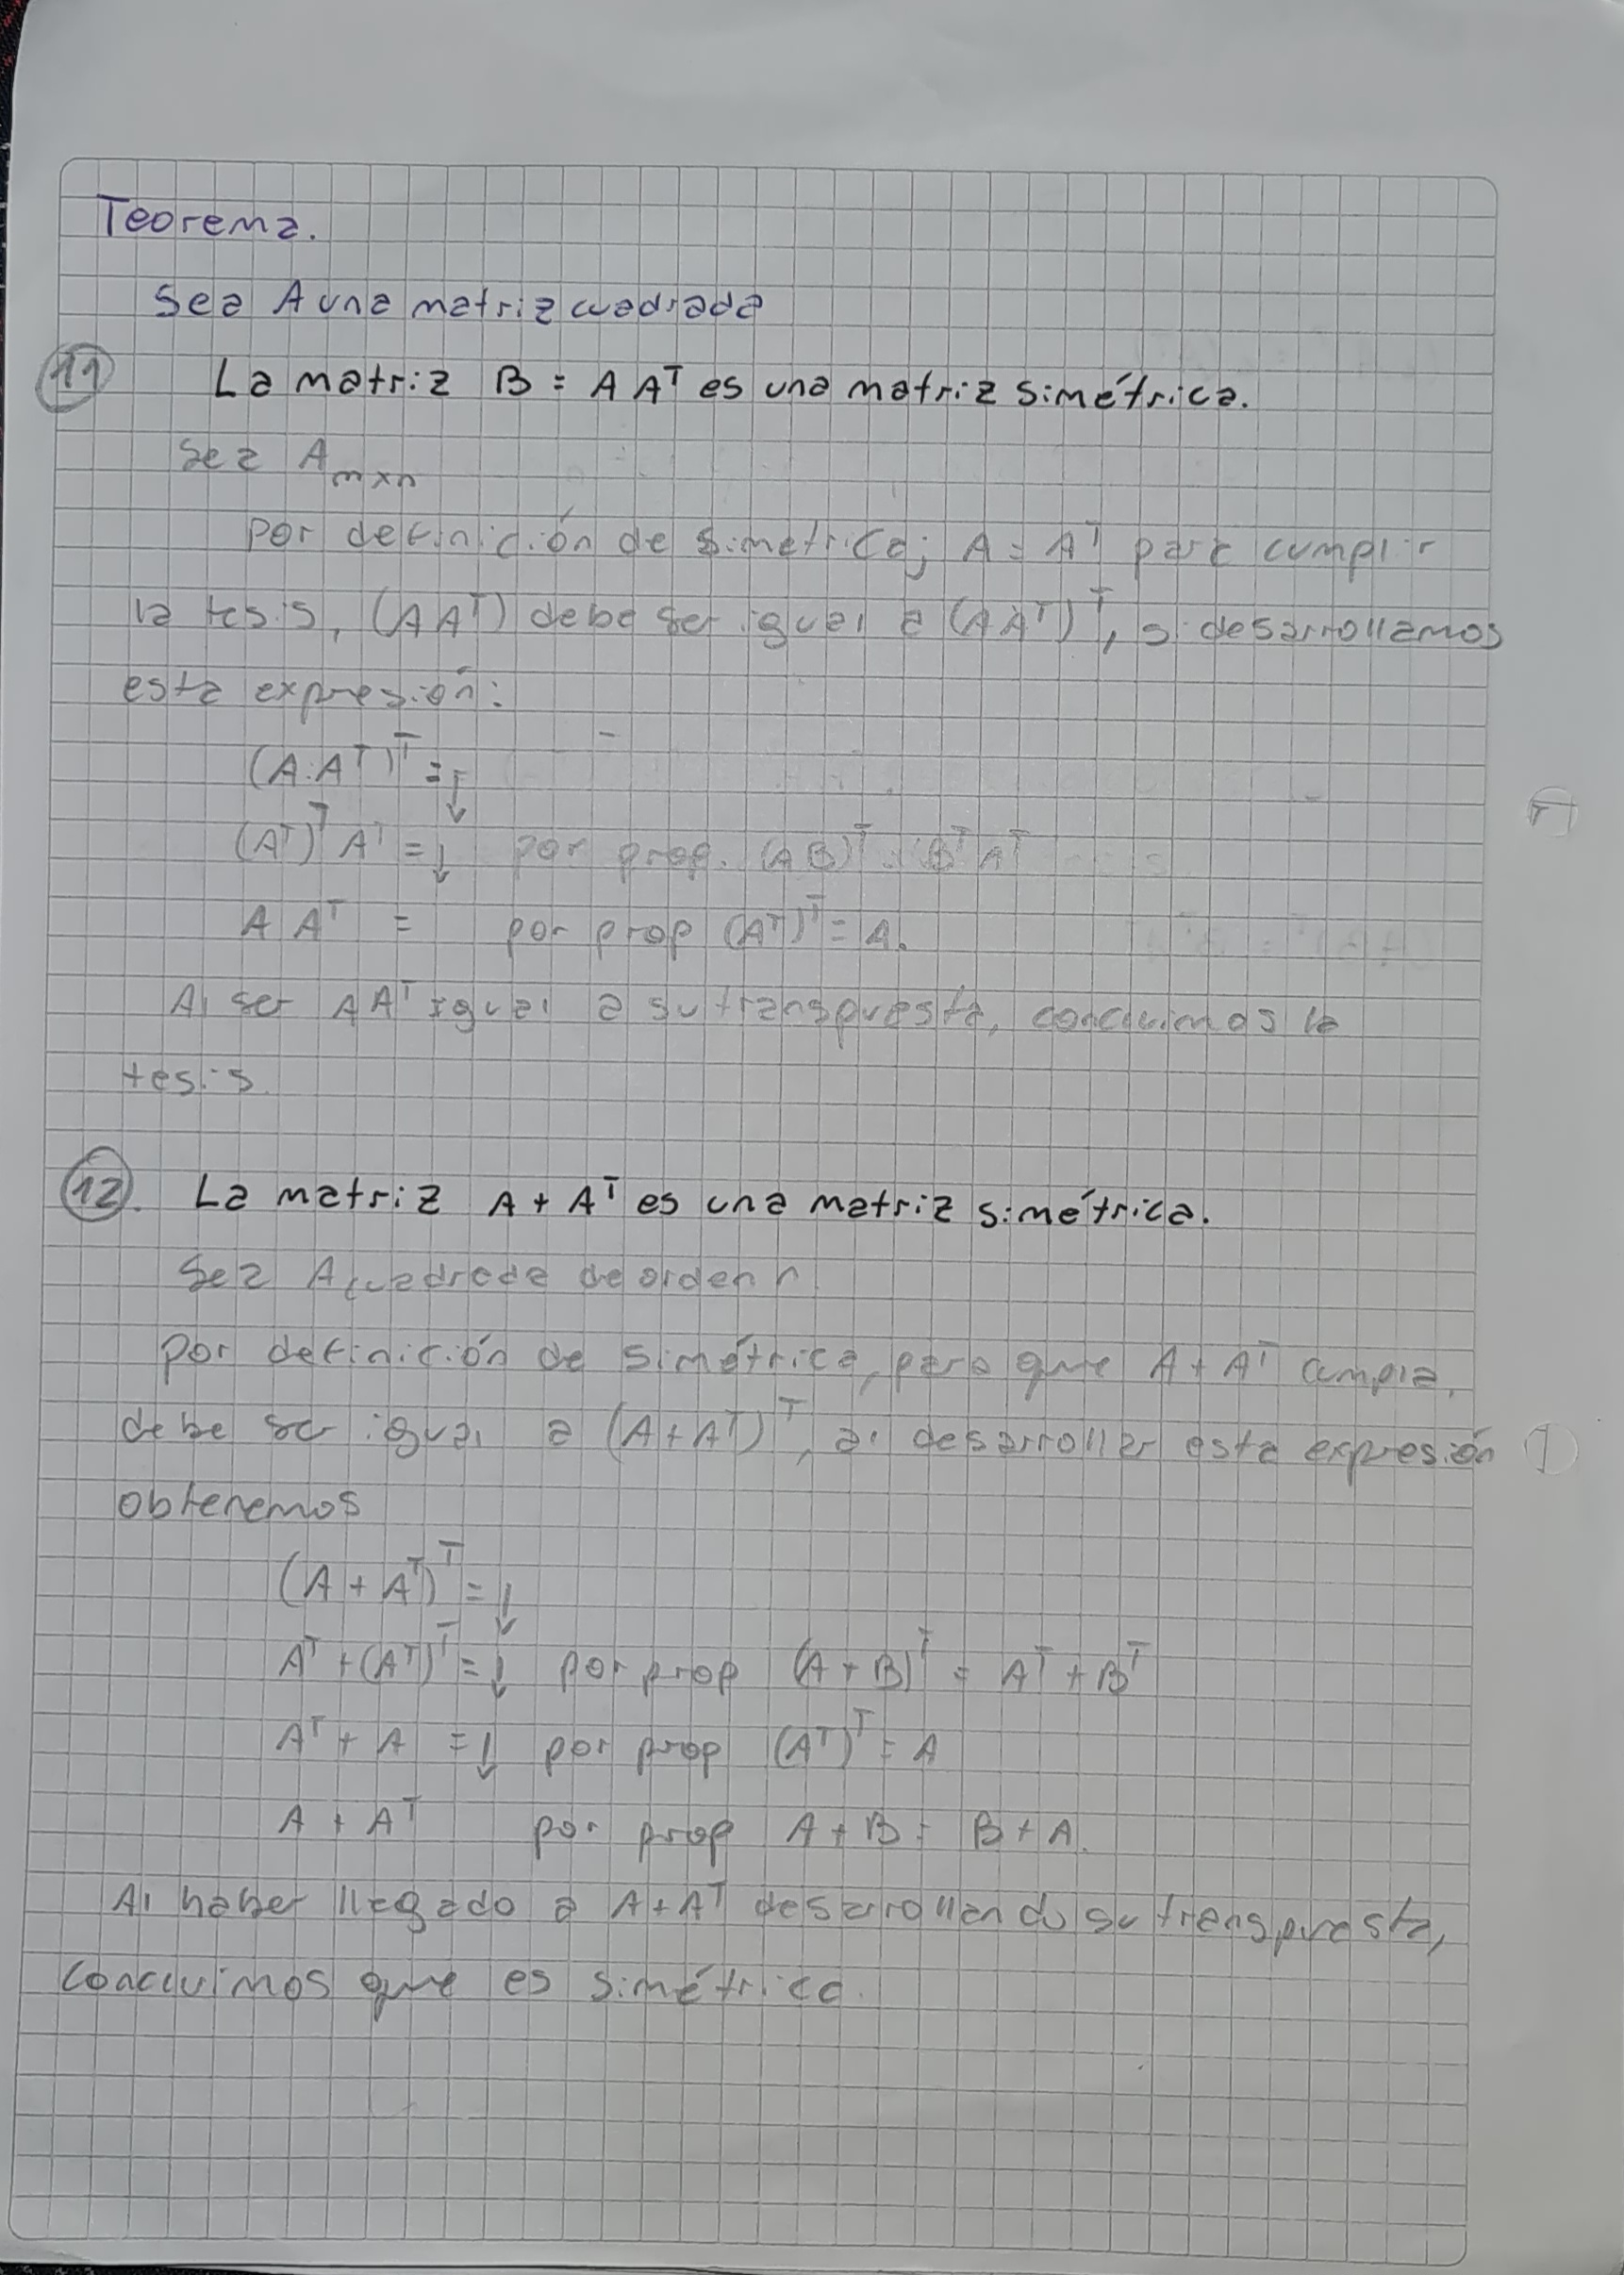 Teorema.
Sea A una matriz cuadrada
11 La matriz B = A Aᵀ es una matriz simétrica.
Sea A m×n
Por definición de simetrica; A = Aᵀ para cumplir
la tesis, (AAᵀ) debe ser igual a (AAᵀ)ᵀ, si desarrollamos
esta expresión:
(A.Aᵀ)ᵀ = ↓
(Aᵀ)ᵀ Aᵀ = ↓ por prop. (AB)ᵀ = BᵀAᵀ
A Aᵀ = por prop (Aᵀ)ᵀ = A.
Al ser AAᵀ igual a su transpuesta, concluimos la
tesis.
12. La matriz A + Aᵀ es una matriz simétrica.
Sea A cuadrada de orden n.
Por definición de simétrica, para que A + Aᵀ cumpla,
debe ser igual a (A+Aᵀ)ᵀ, al desarrollar esta expresión
obtenemos
(A + Aᵀ)ᵀ = ↓
Aᵀ + (Aᵀ)ᵀ = ↓ por prop (A + B)ᵀ = Aᵀ + Bᵀ
Aᵀ + A = ↓ por prop (Aᵀ)ᵀ = A
A + Aᵀ por prop A + B = B + A.
Al haber llegado a A+Aᵀ desarrollando su transpuesta,
concluimos que es simétrica.